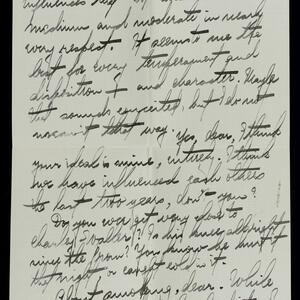 influences
medium and moderate in nearly
every respect. It seems to me the
best for every temperament and
disposition & and character. Maybe
that sounds conceited, but I do not
mean it that way. Yes, dear, I think
your ideal is mine, entirely. I think
we have influenced each others
the last two years, don't you?
Do you ever get very close to
Charley Waller? Is his knee all right
since the prom? You know he hurt it
that night or caught cold in it.
About smoking, dear. While